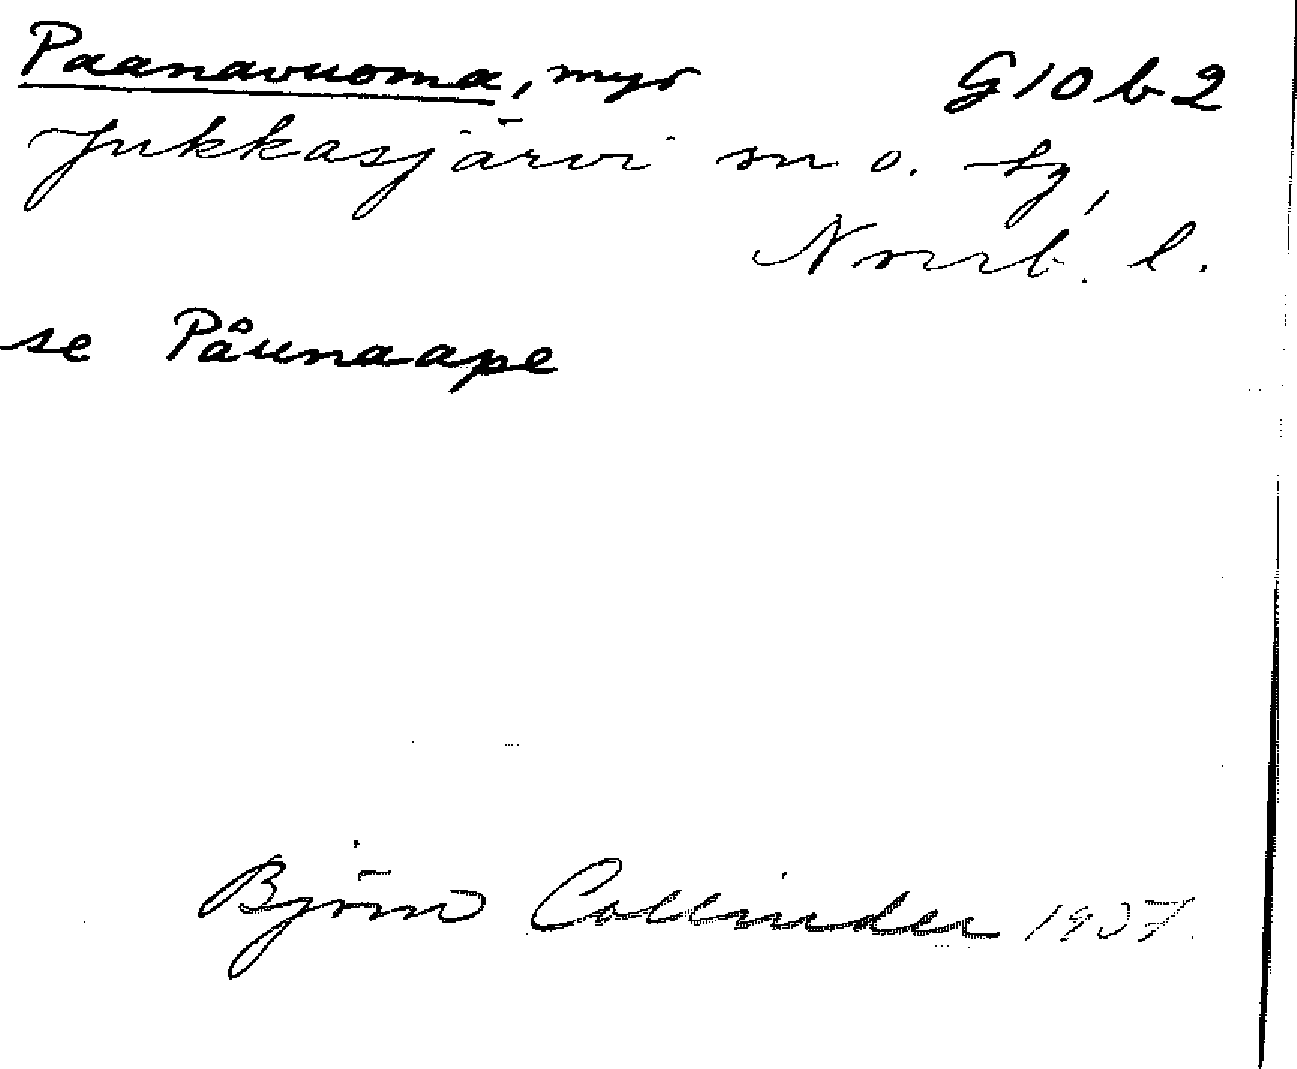 Paanavuoma, myr G10b2
Jukkasjärvi sn o. tg,
Norrb. l.
se Påunaape
Björn Collinder 1937.